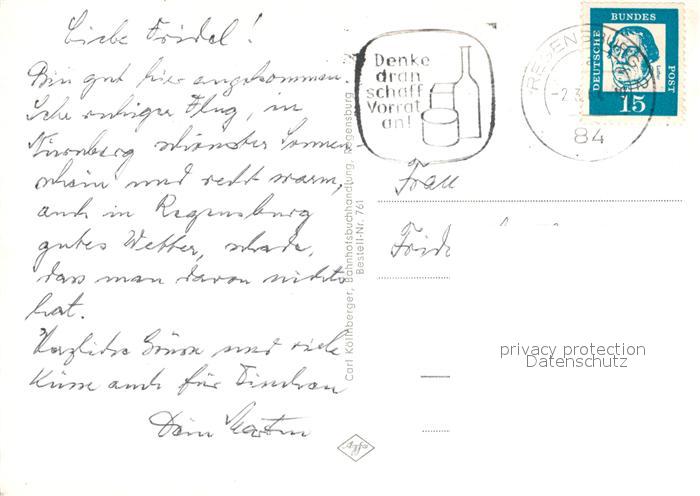 Liebe Fridel!
Bin gut hier angekommen.
Sehr ruhiger Flug, in
Nürnberg schönster Sonnen-
schein und recht warm,
auch in Regensburg
gutes Wetter, schade,
dass man davon nichts
hat.
Herzliche Grüsse und viele
Küsse auch für
Dein
Carl Köllnberger, Bahnhofsbuchhandlung, Regensburg
Bestell-Nr. 761
Agfa
Denke
dran
schaff
Vorrat
an!
REGENSBURG
-2.3.
84
DEUTSCHE
BUNDES
POST
Luther
15
Frau
privacy protection
Datenschutz